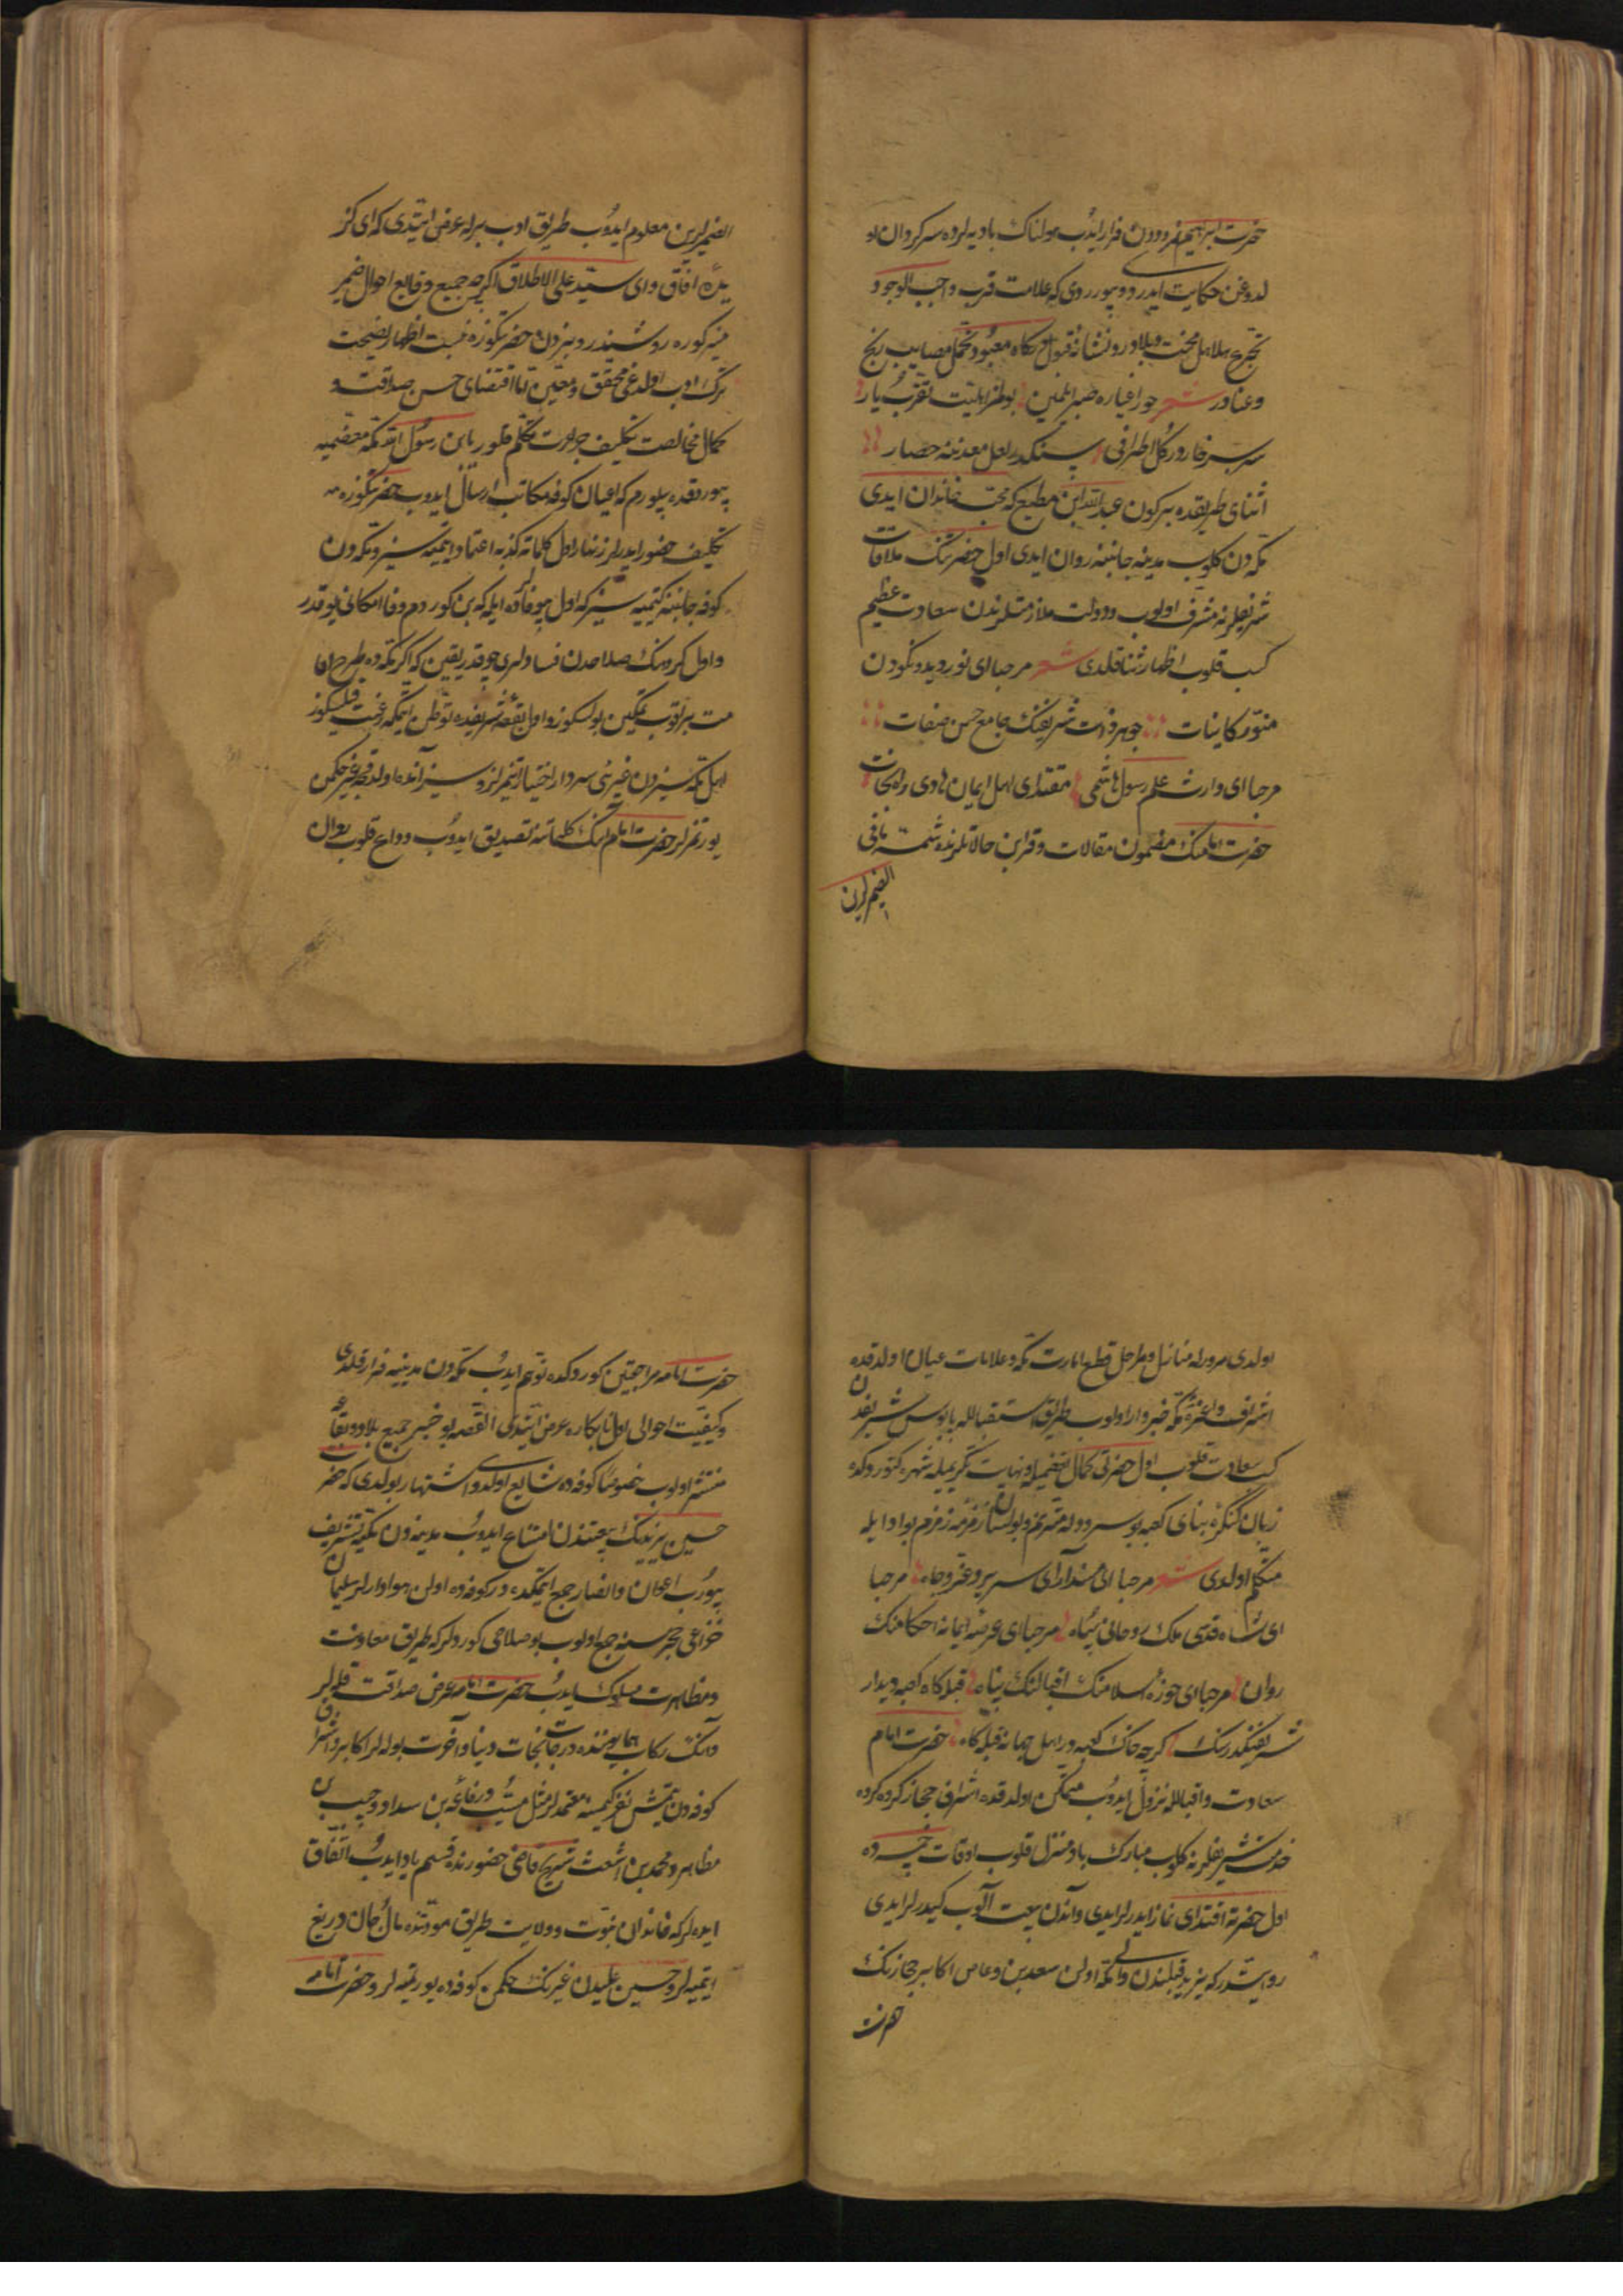 حضرت ابراهیم نمروددن فرار ایدب هولناک بادیه لرده سرکردان او
لدوغن حکایت ایدردو بیوررردی که علامت قرب واجب الوجود
تجرع هلاهل محنت وبلادر ونشانهٔ قبول درکاه معبود تحمل مصایب رنج
وعنادر شعر جور اغیاره صبر ایلمین بولمز اهلیت تقرب یار
سر بسر خارور کل اطرافی سنکدر لعل معدننه حصار
اثنای طریقده بر کون عبدالله ابن مطیع که محب خاندان ایدی
مکه دن کلوب مدینه جانبنه روان ایدی اول حضرتنک ملاقات
شریفلرنه مشرف اولوب ودولت ملازمتلرندن سعادت عظیم
کسب قلوب اظهار ثنا قلدی شعر مرحبا ای نور دیدونکودن
منور کاینات جوهر ذات شریفنک جامع حسن صفات
مرحبا ای وارث علم رسول هاشمی مقتدای اهل ایمان هادی راه نجات
حضرت امامنک مضمون مقالات وقراین حالاتلرنده شمه مافی
الضمیرلرین
الضمیرلرین معلوم ایدوب طریق ادب برله عرض ایتدی که ای کز
یدهٔ آفاق وای سید علی الاطلاق اکرچه جمیع وقایع احوال ضمیر
منیرکوزه روشندر وبزدن حضرتکوزه نسبت اظهار نصیحت
ترک ادب اولدغی محقق ومعین اما اقتضای حسن صداقت و
کمال مخالصت تکلیف جراءت تکلم قلور یابن رسول الله مکه معظمیه
بیوردقده بیلورم که اعیان کوفه مکاتب ارسال ایدوب حضرتکوزه
تکلیف حضور ایدرلر زنهار اول کلمات کذبه اعتماد ایتمیه سز ومکه دن
کوفه جانبنه کیتمیه سز که اول بیوفاده ایله که بن کوردم وفا امکانی یوقدر
واول کروهنک صلاحدن فسادلری چوقدر یقین که اکر مکه ده طرح اقا
مت براقوب متمکین بولسکوز واول بقعهٔ شریفده توطن ایتمکه رغبت قلسکوز
اهل مکه سزدن غیرنی سردار اختیار ایتمزلر و سز آنده اولدقجه غیر حکمن
یورتمزلر حضرت امام انک کلماتنه تصدیق ایدوب وداع قلوب روان
اولدی مرورله منازل ومراحل قطع امارت مکه وعلامات عیان اولدقده
اشراف واعزهٔ مکه خبردار اولوب طریق استقبالله پابوس شریفندن
کسب سعادت قلوب اول حضرتی کمال تعظیمله ونهایت تکریمیله شهره کتوردکده
زبان کنکرهٔ بنای کعبه بو سرودله مترنم وبولسان زمزمه زمزم بو ادا ایله
متکلم اولدی شعر مرحبا ای مسند آرای سریر وعز وجاه مرحبا
ای شاه قدسی ملک روحانی سپاه مرحبا ای عرصهٔ ایمانه احکامنک
روان مرحبا ای حوزهٔ اسلامنک اقبالنک پناه قبله کاه کعبه دیدار
شریفنکدر سنک کرچه خاک کعبه در اهل جهانه قبله کاه حضرت امام
سعادت واقبالله نزول ایدوب متمکن اولدقده اشراف حجاز کرده کرده
خدمت شریفلرنه کلوب مبارک باد منزل قلوب اوقات خمسه ده
اول حضرته اقتدای نماز ایدرلر ایدی واندن بیعت آلوب کیدرلر ایدی
روایتدر که یزید قبلندن والی مکه اولن سعد بن وعاص اکابر حجازنک
حضرت
حضرت امامه مراجعتین کوردکده توهم ایدب مکه دن مدینیه فرار قلدی
وکیفیت احوالی اول نابکاره عرض ایتدی القصه بو خبر جمیع بلاد وبقاع
منتشر اولوب خصوصا کوفه ده شایع اولدی واشتهار بولدی که حضرت
حسین یزیدنک بیعتندن امتناع ایدوب مدینه دن مکیه تشریف
بیورب اعوان وانصار جمع ایتمکده در کوفه ده اولن هوادارلر سلیمان
خزاعی حجره سنه جمع اولوب بو صلاحی کوردلر که طریق معاونت
ومظاهرت مسلوک ایدب حضرت امامه عرض صداقت قله لر
وانک رکاب همایوننده درجات نجات دنیا وآخرت بوله لر اکابر واشراف
کوفه دن یتمش نفر کیمسه معتمدلر مثل مسیب ورفاعه بن سداد وحبیب بن
مظاهر ومحمد بن اشعث شریح قاضی حضورنده قسم یاد ایدب اتفاق
ایده لر که خاندان نبوت وولایت طریق مودتنده مال وجان دریغ
ایتمیه لر وحسین علیدن غیرنک حکمن کوفه ده یورتمیه لر وحضرت امامه